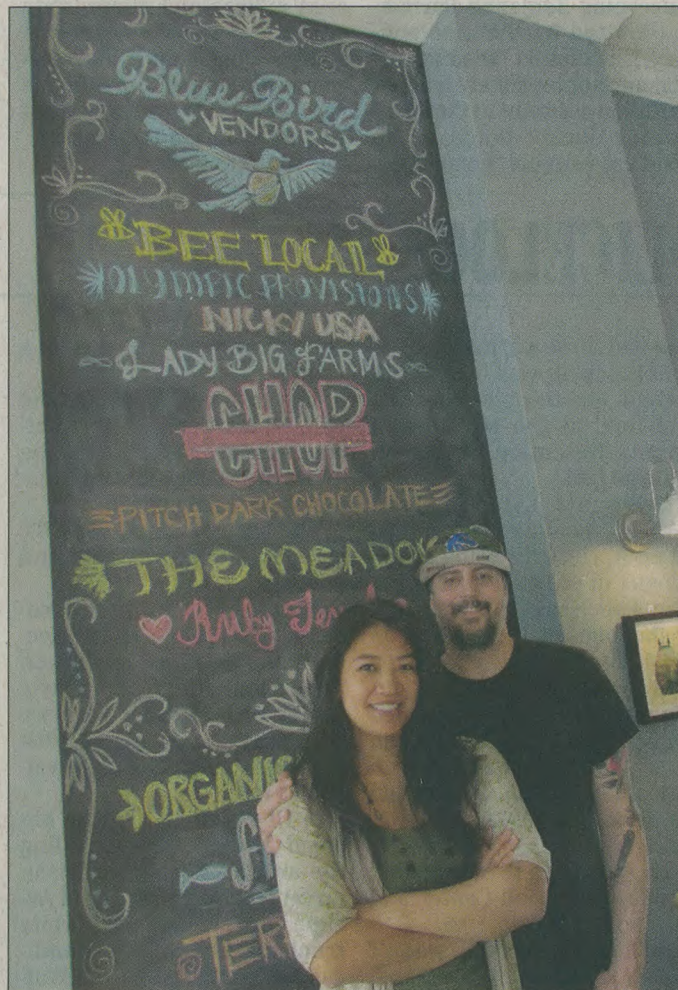 Blue Bird
VENDORS
BEE LOCAL
OLYMPIC PROVISIONS
NICKY USA
LADY BIG FARMS
CHOP
PITCH DARK CHOCOLATE
THE MEADOW
Ruby
ORGANIC